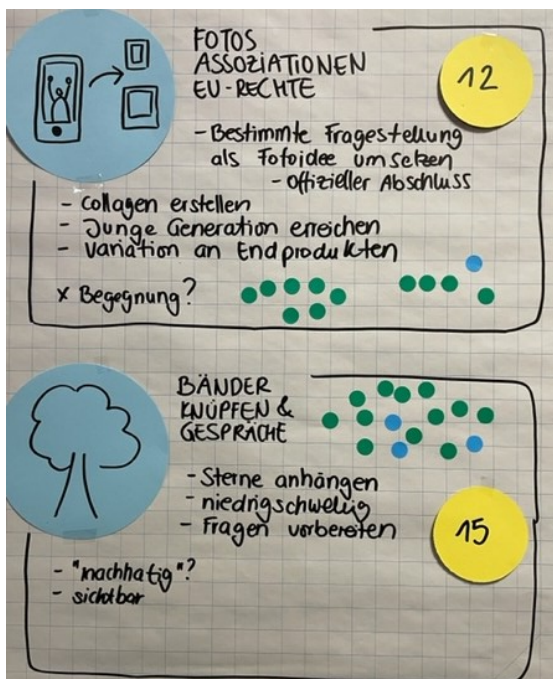 FOTOS
ASSOZIATIONEN
EU-RECHTE
12
- Bestimmte Fragestellung
als Fotoidee umsetzen
- Offizieller Abschluss
- Collagen erstellen
- Junge Generation erreichen
- Variation an Endprodukten
x Begegnung?
BÄNDER
KNÜPFEN &
GESPRÄCHE
- Sterne anhängen
- niedrigschwellig
- Fragen vorbereiten
15
- "nachhatig"?
- sichtbar